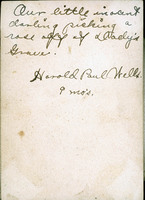 Our little inocent
darling picking a
rose off of Dady's
Grave.
Harold Paul Wells.
9 mo's.